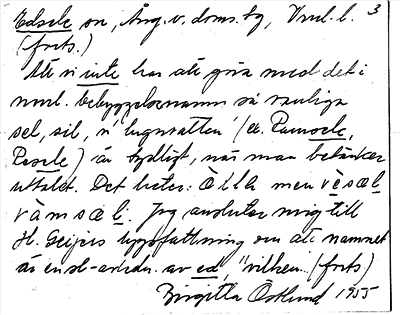 Edsele sn, Ång. v. doms. sg, Vnrl. l. 3
(forts.)
Att vi inte har att göra med det i
norrl. bebyggelsenamn så vanliga
sel, sil, n 'lugnvatten' (ex. Ramsele,
Resele) är tydligt, när man betänker
uttalet. Det heter: men vèsæl
vàmsæl. Jag ansluter mig till
H. Geijers uppfattning om att namnet
är en sl-avledn. av ed, "vilken (forts)
Birgitta Östlund 1955